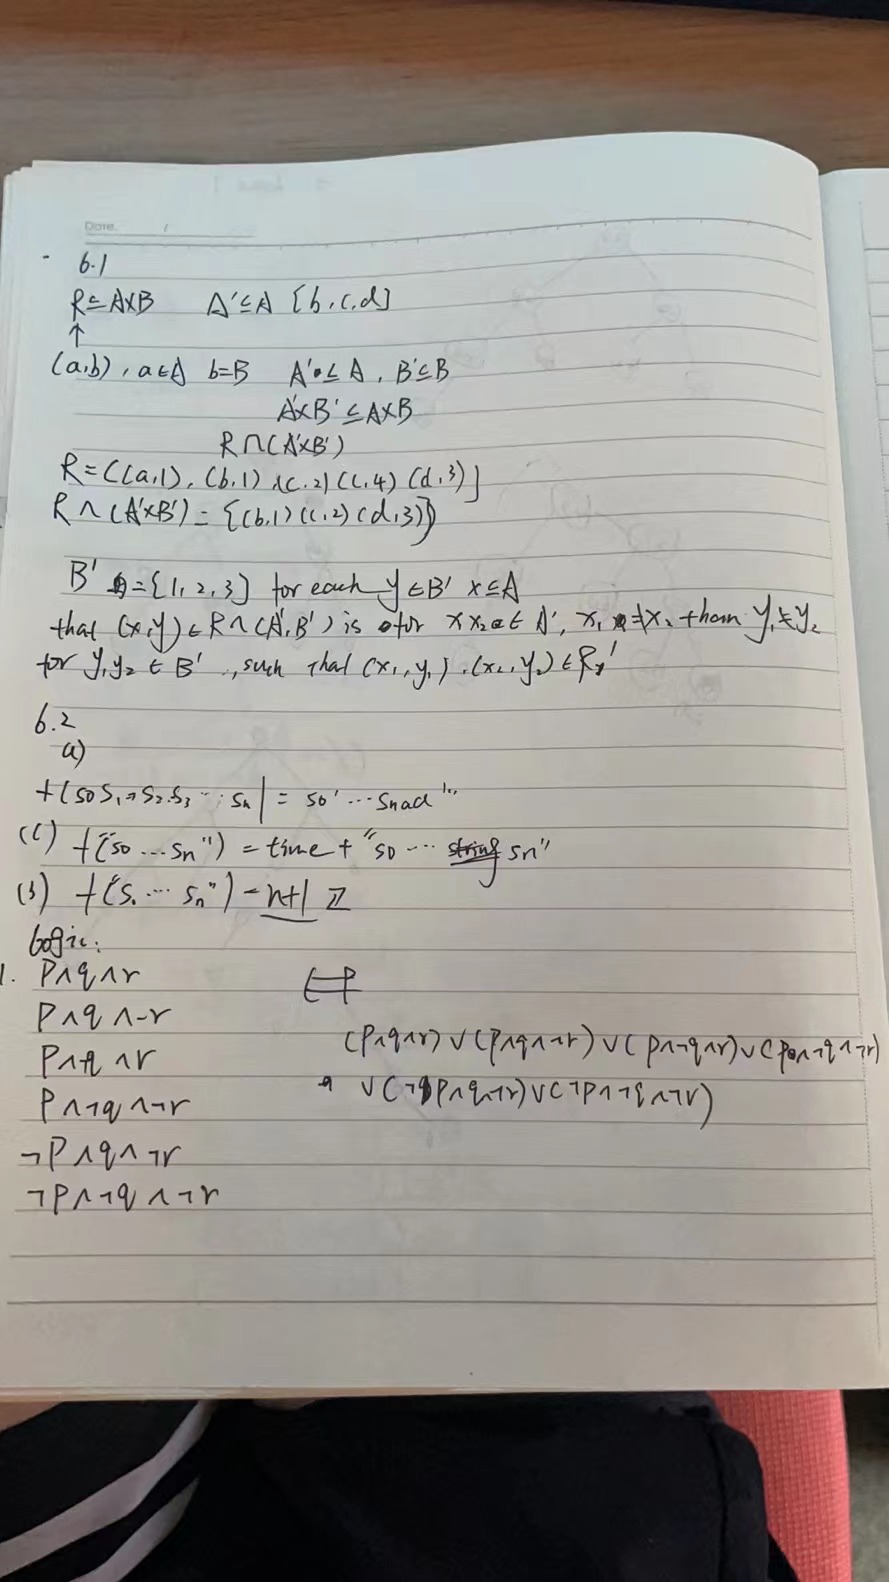 Date. /
6.1
R ⊆ A×B A' ⊆ A {b, c, d]
↑
(a,b), a∈A b=B A' ⊆ A, B' ⊆ B
A'×B' ⊆ A×B
R∩(A'×B')
R = ((a,1), (b,1) (c,2) (c,4) (d,3)]
R∩(A'×B') = {(b,1) (c,2) (d,3)}
B' = {1, 2, 3] for each y∈B' x⊆A
that (x,y) ∈ R∩(A',B') is for x x₂ ∈ A', x₁ ≠ x₂ than y₁ ≠ y₂
for y₁y₂ ∈ B' , such that (x₁,y₁), (x₂,y₂) ∈ R'
6.2
a)
= so' ... snad"
(c) f("so ... sn") = time + "so ... sn"
(b) f("s. ... sn") = n+1 ℤ
Logic:
1. P∧q∧r
P∧q∧¬r
P∧¬q∧r
P∧¬q∧¬r
¬P∧q∧¬r
¬P∧¬q∧¬r
(P∧q∧r) ∨ (P∧q∧¬r) ∨ (P∧¬q∧r) ∨ (P∧¬q∧¬r)
∨ (¬P∧q∧¬r) ∨ (¬P∧¬q∧¬r)